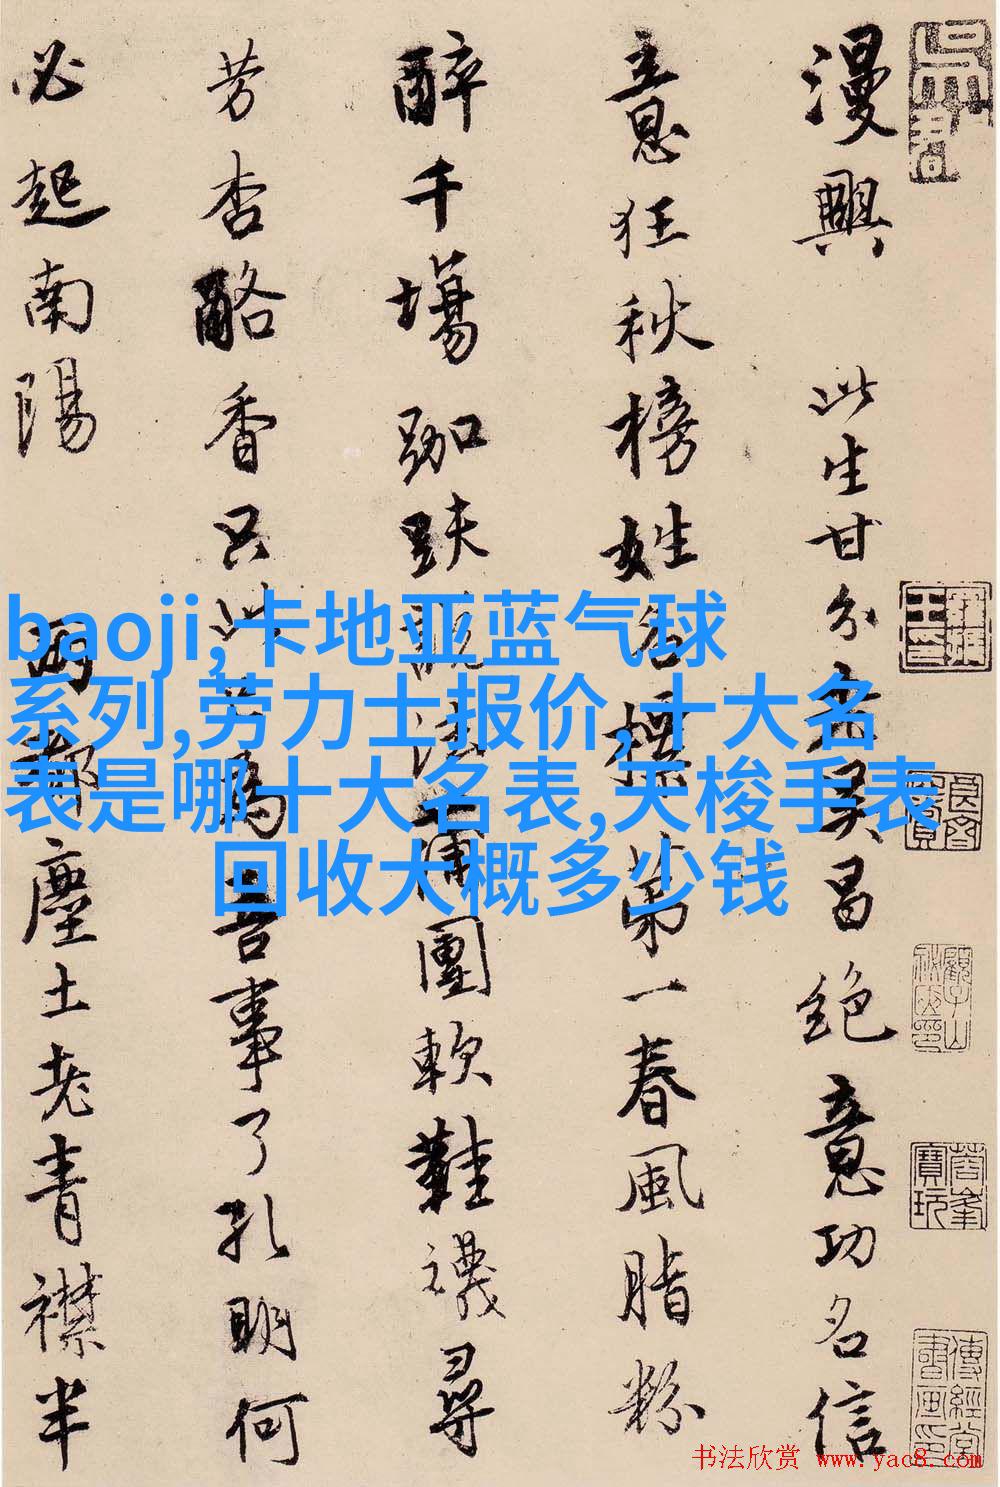 漫興 此生甘分老吳昌絕意功名信
意狂秋榜姓名標第一春風脂粉
醉千場跏趺說法蒲團軟鞋襪尋
芳杏酪香只此為吾事了孔明何
必起南陽 兩都塵土老青襟半
baoji,卡地亚蓝气球
系列,劳力士报价,十大名
表是哪十大名表,天梭手表
回收大概多少钱
书法欣赏 www.yac8.com